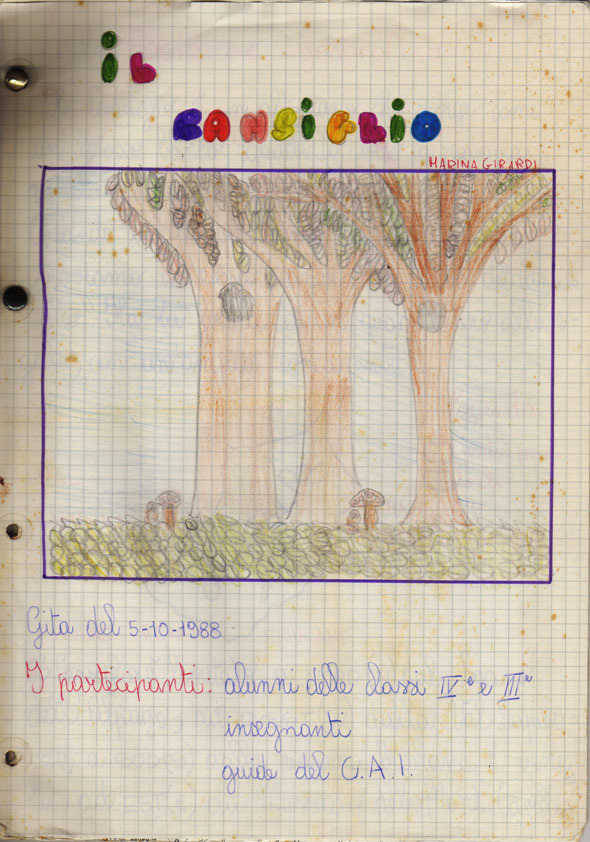 iL
CANSiGLiO
MARINA GIRARDI
Gita del 5-10-1988
I partecipanti: alunni delle classi IVe e IIIe
insegnanti
guide del C.A.I.